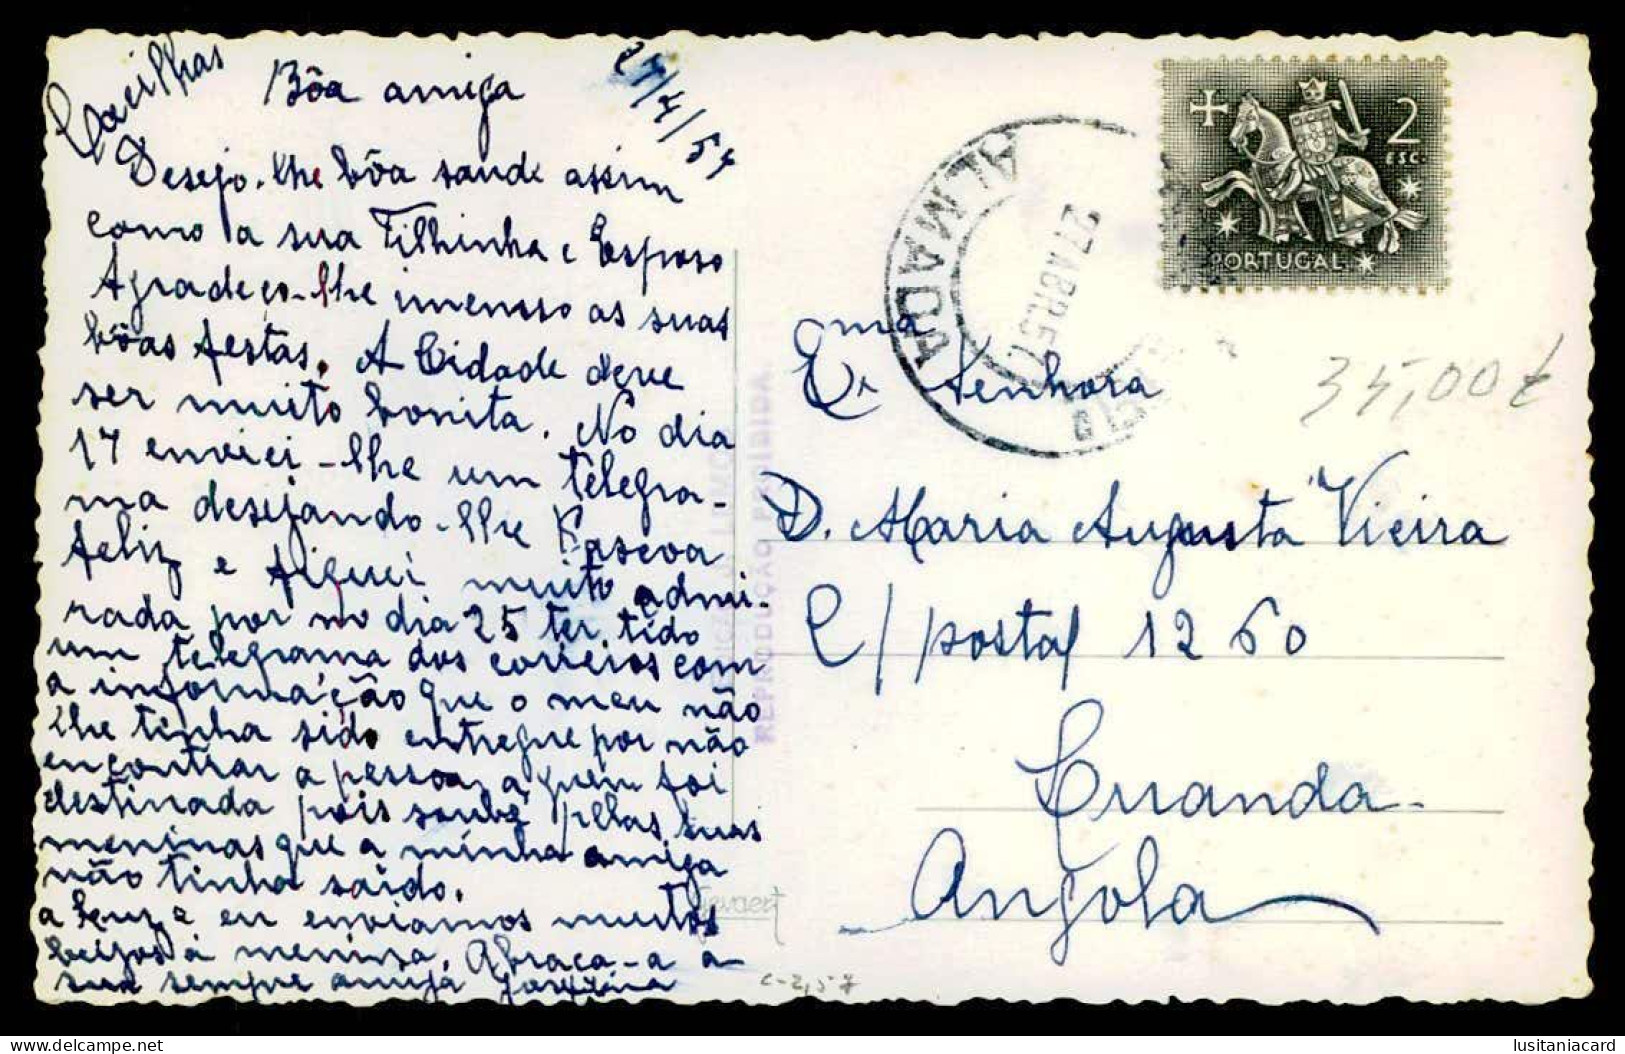 Cacilhas
27/4/54
Bôa amiga
Desejo-lhe bôa saude assim
como a sua Filhinha e Esposo
Agradeço-lhe imenso as suas
bôas festas. A Cidade deve
ser muito bonita. No dia
17 enviei-lhe um telegra-
ma desejando-lhe Pascoa
feliz e fiquei muito admi-
rada por no dia 25 ter tido
um telegrama dos correios com
a informação que o meu não
lhe tinha sido entregue por não
encontrar a pessoa a quem foi
destinada pois soube pellas suas
meninas que a minha amiga
não tinha saido.
a e eu enviamos muitos
beijos á menina. Abraça-a a
sua sempre amiga
ALMADA
27 ABR. 5
2
ESC.
PORTUGAL
35,00€
Exma Senhora
D. Maria Augusta Vieira
C/ postal 1260
Luanda-
Angola
REPRODUÇÃO PROIBIDA
Gevaert
c-2,57
delcampe.net
lusitaniacard